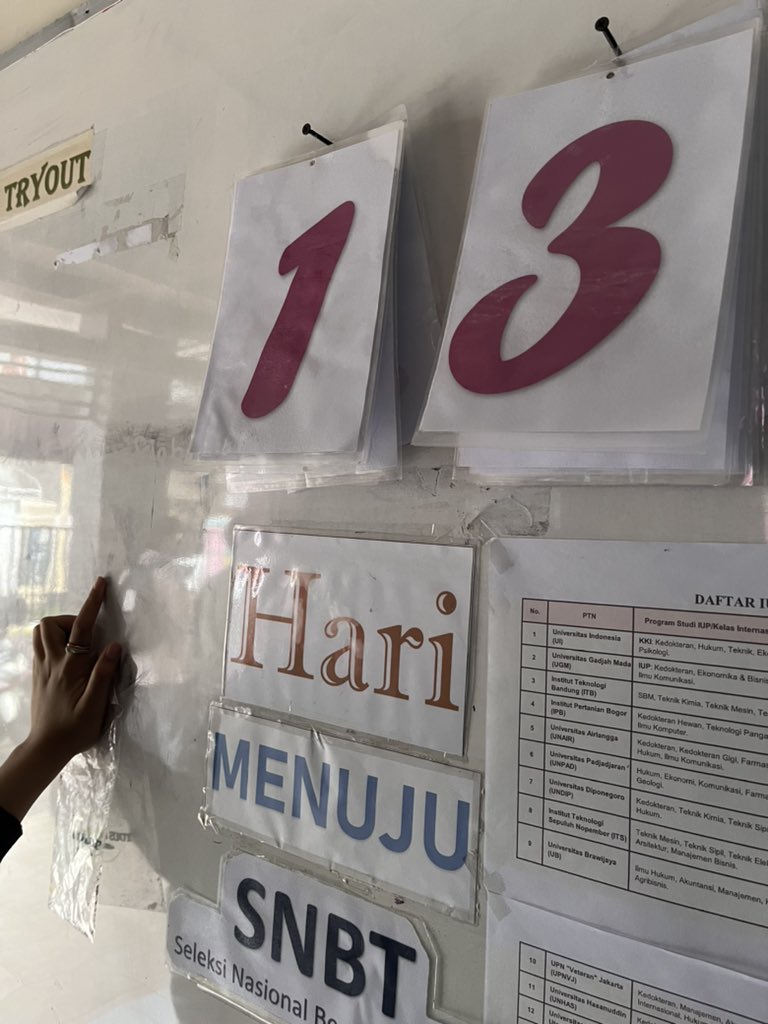 TRYOUT
1 3
Hari
MENUJU
SNBT
Seleksi Nasional
DAFTAR
No. PTN Program Studi IUP/Kelas
1 Universitas Indonesia (UI) KKI: Kedokteran, Hukum, Teknik, Psikologi.
2 Universitas Gadjah Mada (UGM) IUP: Kedokteran, Ekonomika & Bisnis Ilmu Komunikasi.
3 Institut Teknologi Bandung (ITB) SBM, Teknik Kimia, Teknik Mesin,
4 Institut Pertanian Bogor (IPB) Kedokteran Hewan, Teknologi Ilmu Komputer.
5 Universitas Airlangga (UNAIR) Kedokteran, Kedokteran Gigi, Hukum, Ilmu Komunikasi.
6 Universitas Padjadjaran (UNPAD) Hukum, Ekonomi, Komunikasi, Geologi.
7 Universitas Diponegoro (UNDIP) Kedokteran, Teknik Kimia, Teknik Hukum.
8 Institut Teknologi Sepuluh Nopember (ITS) Teknik Mesin, Teknik Sipil, Teknik Arsitektur, Manajemen Bisnis.
9 Universitas Brawijaya (UB) Ilmu Hukum, Akuntansi, Manajemen, Agribisnis.
10 UPN "Veteran" Jakarta (UPNVJ) Kedokteran, Manajemen, Internasional,
11 Universitas Hasanuddin (UNHAS) Kedokteran,
12